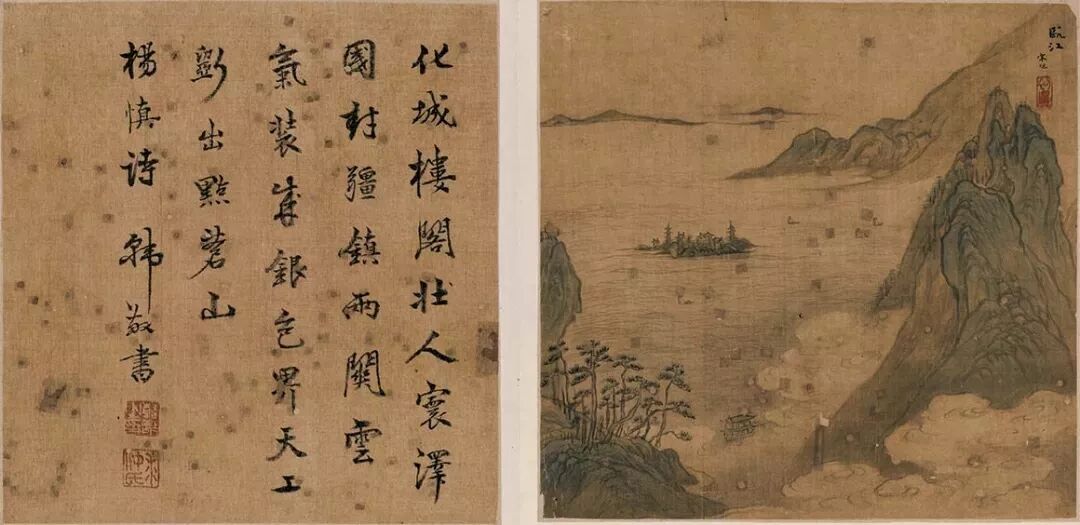 化城樓閣壯人寰澤
國封疆鎮兩關雲
氣裝成銀色界天工
斵出點蒼山
楊慎詩 韓敬書
甌江